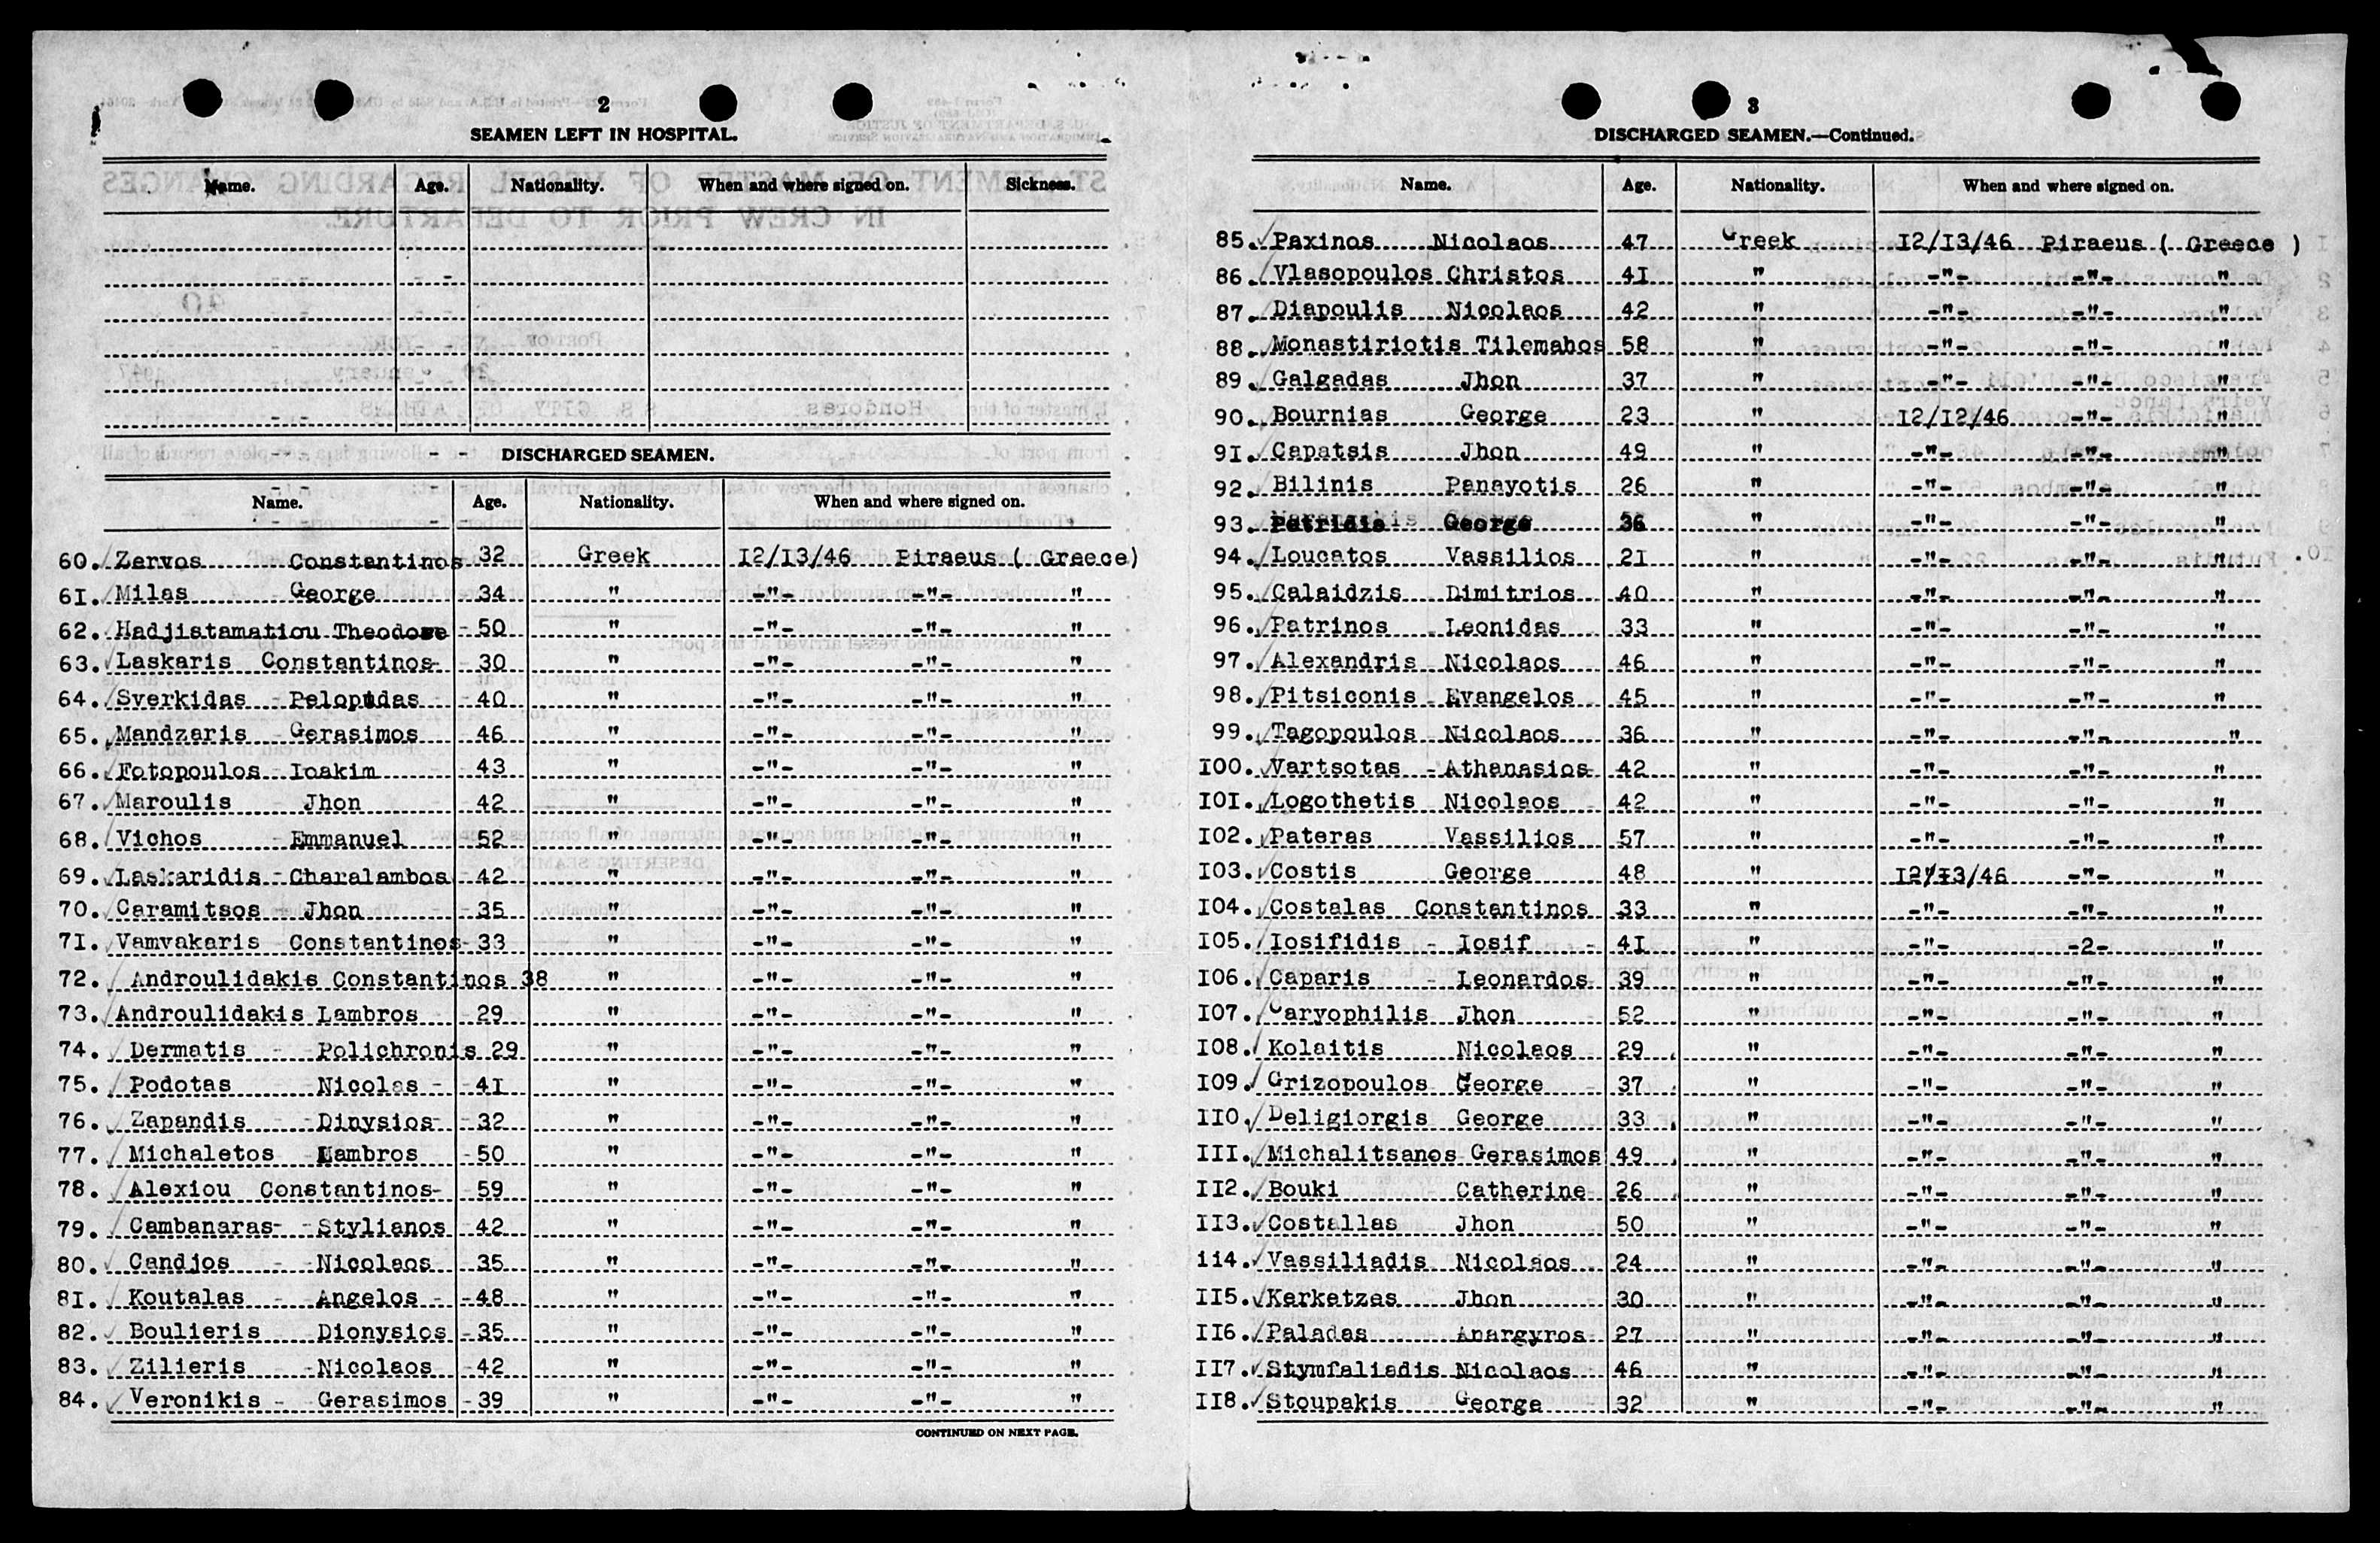 2
SEAMEN LEFT IN HOSPITAL.
Name. Age. Nationality. When and where signed on. Sickness.
DISCHARGED SEAMEN.
Name. Age. Nationality. When and where signed on.
60. Zervos Constantinos 32 Greek I2/I3/46 Piraeus ( Greece)
6I. Milas George 34 " -"- -"- "
62. Hadjistamatiou Theodore - 50 " -"- -"- "
63. Laskaris Constantinos- 30 " -"- -"- "
64. Sverkidas - Pelopidas - 40 " -"- -"- "
65. Mandzaris - Gerasimos 46 " -"- -"- "
66. Fotopoulos Ioakim - 43 " -"- -"- "
67. Maroulis Jhon 42 " -"- -"- "
68. Vichos - Emmanuel 52 " -"- -"- "
69. Laskaridis - Charalambos 42 " -"- -"- "
70. Caramitsos - Jhon -35 " -"- -"- "
7I. Vamvakaris Constantinos- 33 " -"- -"- "
72. Androulidakis Constantinos 38 " -"- -"- "
73. Androulidakis Lambros - 29 " -"- -"- "
74. Dermatis - Polichronis 29 " -"- -"- "
75. Podotas - Nicolas - -4I " -"- -"- "
76. Zapandis - -Dinysios- -32 " -"- -"- "
77. Michaletos Lambros -50 " -"- -"- "
78. Alexiou Constantinos- 59 " -"- -"- "
79. Cambanaras- -Stylianos -42 " -"- -"- "
80. Candjos - -Nicolaos- -35 " -"- -"- "
8I. Koutalas - Angelos - -48 " -"- -"- "
82. Boulieris Dionysios -35 " -"- -"- "
83. Zilieris - -Nicolaos -42 " -"- -"- "
84. Veronikis - Gerasimos -39 " -"- -"- "
CONTINUED ON NEXT PAGE.
3
DISCHARGED SEAMEN.—Continued.
Name. Age. Nationality. When and where signed on.
85. Paxinos Nicolaos 47 Greek I2/I3/46 Piraeus ( Greece )
86. Vlasopoulos Christos 4I " -"- -"- "
87. Diapoulis Nicolaos 42 " -"- -"- "
88. Monastiriotis Tilemahos 58 " -"- -"- "
89. Galgadas Jhon 37 " -"- -"- "
90. Bournias George 23 " I2/I2/46 -"- "
9I. Capatsis Jhon 49 " -"- -"- "
92. Bilinis Panayotis 26 " -"- -"- "
93. Patridis George 36 " -"- -"- "
94. Loucatos Vassilios 2I " -"- -"- "
95. Calaidzis Dimitrios 40 " -"- -"- "
96. Patrinos Leonidas 33 " -"- -"- "
97. Alexandris Nicolaos 46 " -"- -"- "
98. Pitsiconis Evangelos 45 " -"- -"- "
99. Tagopoulos Nicolaos 36 " -"- -"- "
I00. Vartsotas - Athanasios 42 " -"- -"- "
I0I. Logothetis Nicolaos 42 " -"- -"- "
I02. Pateras Vassilios 57 " -"- -"- "
I03. Costis George 48 " I2/I3/46 -"- "
I04. Costalas Constantinos 33 " -"- -"- "
I05. Iosifidis - Iosif - 4I " -"- -2- "
I06. Caparis - Leonardos 39 " -"- -"- "
I07. Caryophilis Jhon 52 " -"- -"- "
I08. Kolaitis Nicolaos 29 " -"- -"- "
I09. Grizopoulos George 37 " -"- -"- "
II0. Deligiorgis George 33 " -"- -"- "
III. Michalitsanos Gerasimos 49 " -"- -"- "
II2. Bouki Catherine 26 " -"- -"- "
II3. Costallas Jhon 50 " -"- -"- "
ii4. Vassiliadis Nicolaos 24 " -"- -"- "
II5. Kerketzas Jhon 30 " -"- -"- "
II6. Paladas Anargyros 27 " -"- -"- "
II7. Stymfaliadis Nicolaos 46 " -"- -"- "
II8. Stoupakis George 32 " -"- -"- "